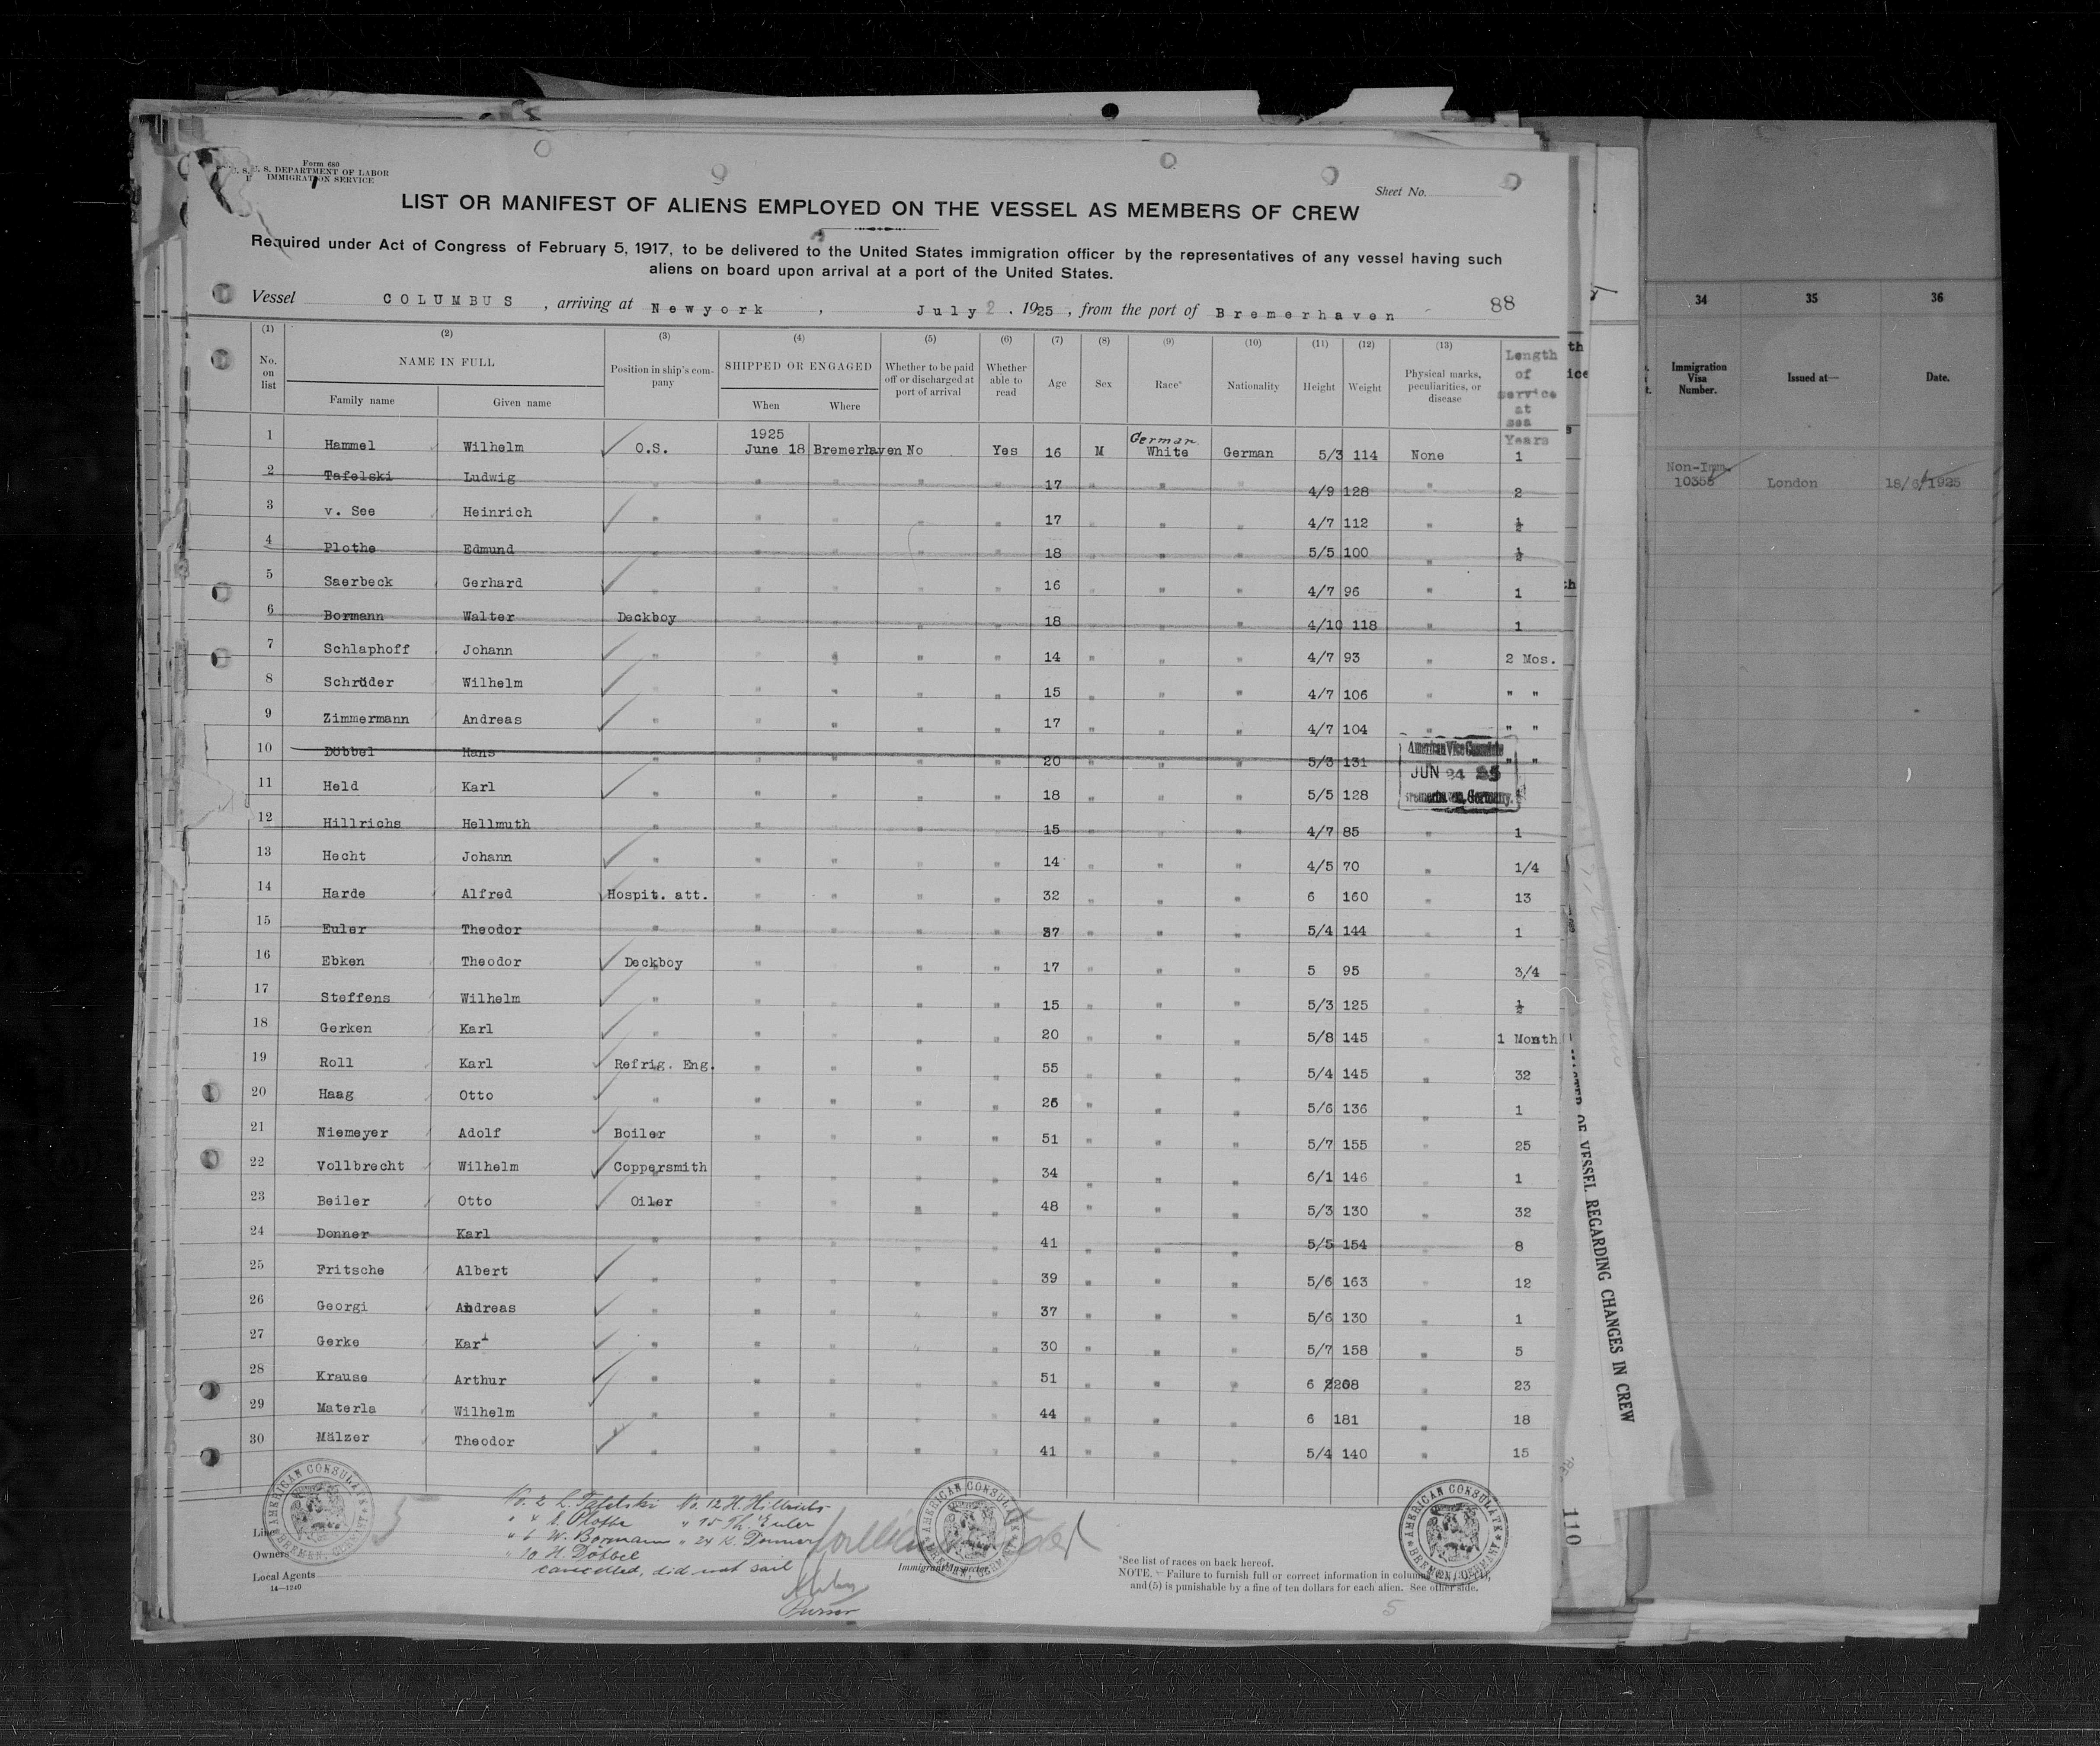 Form 680
U. S. DEPARTMENT OF LABOR
IMMIGRATION SERVICE
Sheet No.
LIST OR MANIFEST OF ALIENS EMPLOYED ON THE VESSEL AS MEMBERS OF CREW
Required under Act of Congress of February 5, 1917, to be delivered to the United States immigration officer by the representatives of any vessel having such
aliens on board upon arrival at a port of the United States.
Vessel COLUMBUS, arriving at Newyork, July 2. 1925, from the port of Bremerhaven 88
(1) (2) (3) (4) (5) (6) (7) (8) (9) (10) (11) (12) (13)
No. on list NAME IN FULL Family name Given name Position in ship's company SHIPPED OR ENGAGED When Where Whether to be paid off or discharged at port of arrival Whether able to read Age Sex Race* Nationality Height Weight Physical marks, peculiarities, or disease Length of service at sea Years
1 Hammel Wilhelm O.S. 1925 June 18 Bremerhaven No Yes 16 M German White German 5/3 114 None 1
2 Tafelski Ludwig " " " " " 17 " " " 4/9 128 " 2
3 v. See Heinrich " " " " " 17 " " " 4/7 112 " ½
4 Plothe Edmund " " " " " 18 " " " 5/5 100 " ½
5 Saerbeck Gerhard " " " " " 16 " " " 4/7 96 " 1
6 Bormann Walter Deckboy " " " " 18 " " " 4/10 118 " 1
7 Schlaphoff Johann " " " " " 14 " " " 4/7 93 " 2 Mos.
8 Schröder Wilhelm " " " " " 15 " " " 4/7 106 " " "
9 Zimmermann Andreas " " " " " 17 " " " 4/7 104 " " "
10 Döbbel Hans " " " " " 20 " " " 5/3 131 " "
11 Held Karl " " " " " 18 " " " 5/5 128
12 Hillrichs Hellmuth " " " " " 15 " " " 4/7 85 " 1
13 Hecht Johann " " " " " 14 " " " 4/5 70 " 1/4
14 Harde Alfred Hospit. att. " " " " 32 " " " 6 160 " 13
15 Euler Theodor " " " " " 37 " " " 5/4 144 " 1
16 Ebken Theodor Deckboy " " " " 17 " " " 5 95 " 3/4
17 Steffens Wilhelm " " " " " 15 " " " 5/3 125 " ½
18 Gerken Karl " " " " " 20 " " " 5/8 145 " 1 Month
19 Roll Karl Refrig. Eng. " " " " 55 " " " 5/4 145 " 32
20 Haag Otto " " " " " 26 " " " 5/6 136 " 1
21 Niemeyer Adolf Boiler " " " " 51 " " " 5/7 155 " 25
22 Vollbrecht Wilhelm Coppersmith " " " " 34 " " " 6/1 146 " 1
23 Beiler Otto Oiler " " " " 48 " " " 5/3 130 " 32
24 Donner Karl " " " " " 41 " " " 5/5 154 " 8
25 Fritsche Albert " " " " " 39 " " " 5/6 163 " 12
26 Georgi Andreas " " " " " 37 " " " 5/6 130 " 1
27 Gerke Karl " " " " " 30 " " " 5/7 158 " 5
28 Krause Arthur " " " " " 51 " " " 6 208 " 23
29 Materla Wilhelm " " " " " 44 " " " 6 181 " 18
30 Mälzer Theodor " " " " " 41 " " " 5/4 140 " 15
American Vice Consulate
JUN 24 25
Bremerhaven, Germany.
AMERICAN CONSULATE
BREMEN, GERMANY
AMERICAN CONSULATE
BREMEN, GERMANY
AMERICAN CONSULATE
BREMEN, GERMANY
No. 2 L. Tafelski No. 12 H. Hillrichs
" 4 E. Plothe " 15 Th. Euler
" 6 W. Bormann " 24 K. Donner
" 10 H. Döbbel
cancelled, did not sail
Purser
Line
Owners
Local Agents
14—1240
Immigrant Inspector
*See list of races on back hereof.
NOTE.—Failure to furnish full or correct information in columns
and (5) is punishable by a fine of ten dollars for each alien. See other side.
5
34 35 36
Immigration Visa Number. Issued at— Date.
Non-Imm. 10358 London 18/6/1925
OF VESSEL REGARDING CHANGES IN CREW
110